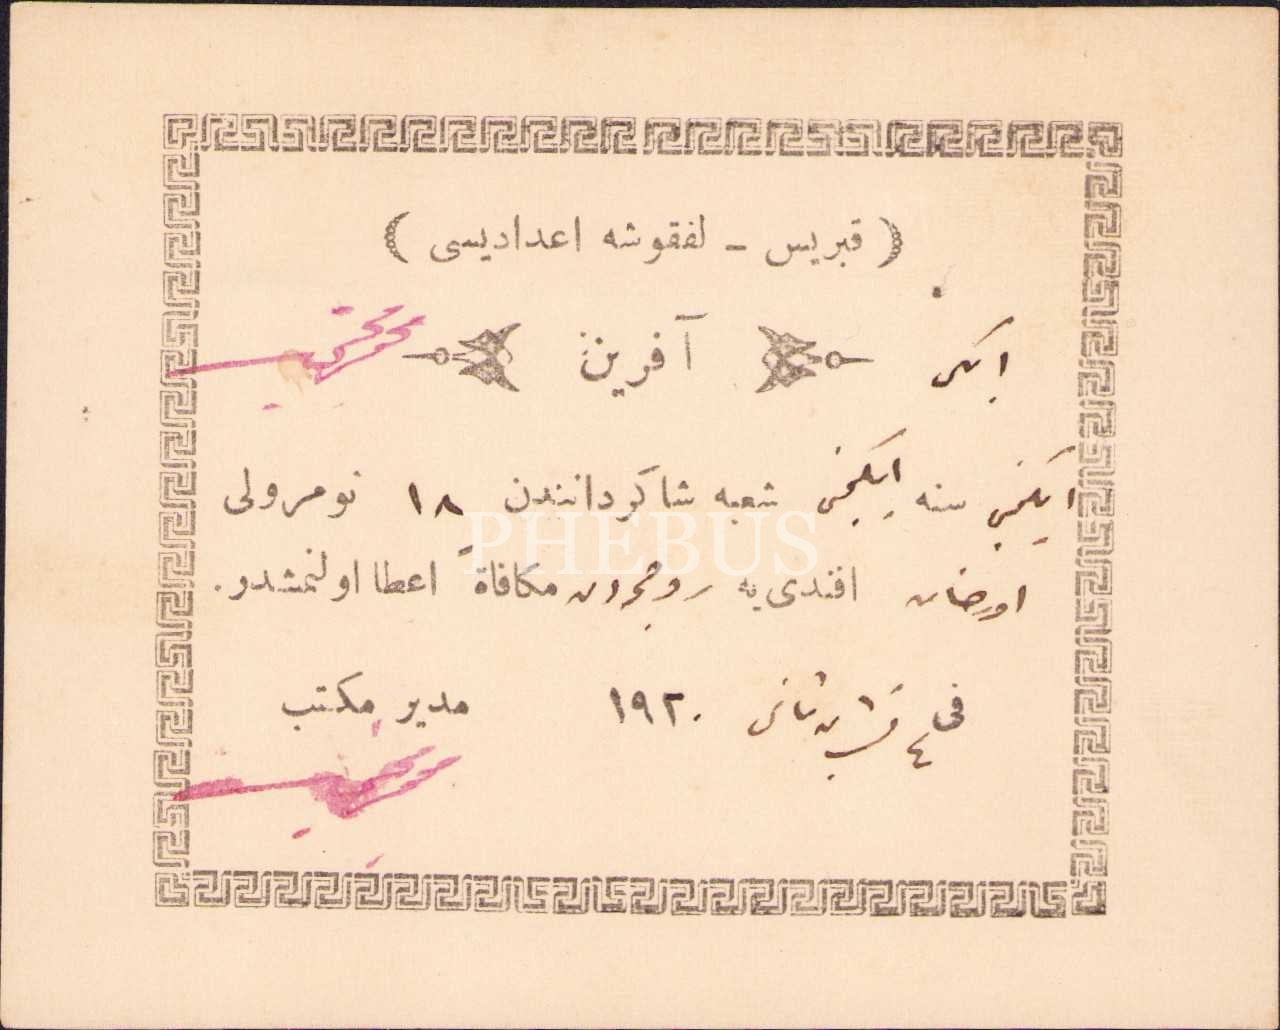 ( قبریس ـ لفقوشه اعدادیسی )
ایكی
آفرین
ایكنجی سنه ایكنجی شعبه شاكردانندن ١٨ نومرولی
اورخان افندی یه مكافاةً اعطا اولنمشدر.
فی ٤ تشرین ثانی ١٩٢٠
مدیر مكتب
PHEBUS